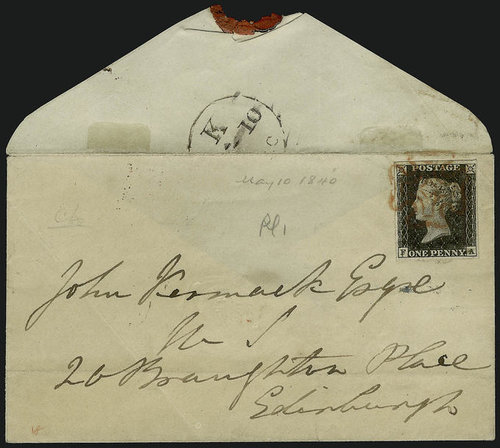 K
10
C
May 10 1840
Pl 1
POSTAGE
F ONE PENNY A
John Kermack Esqre
W S
20 Broughton Place
Edinburgh